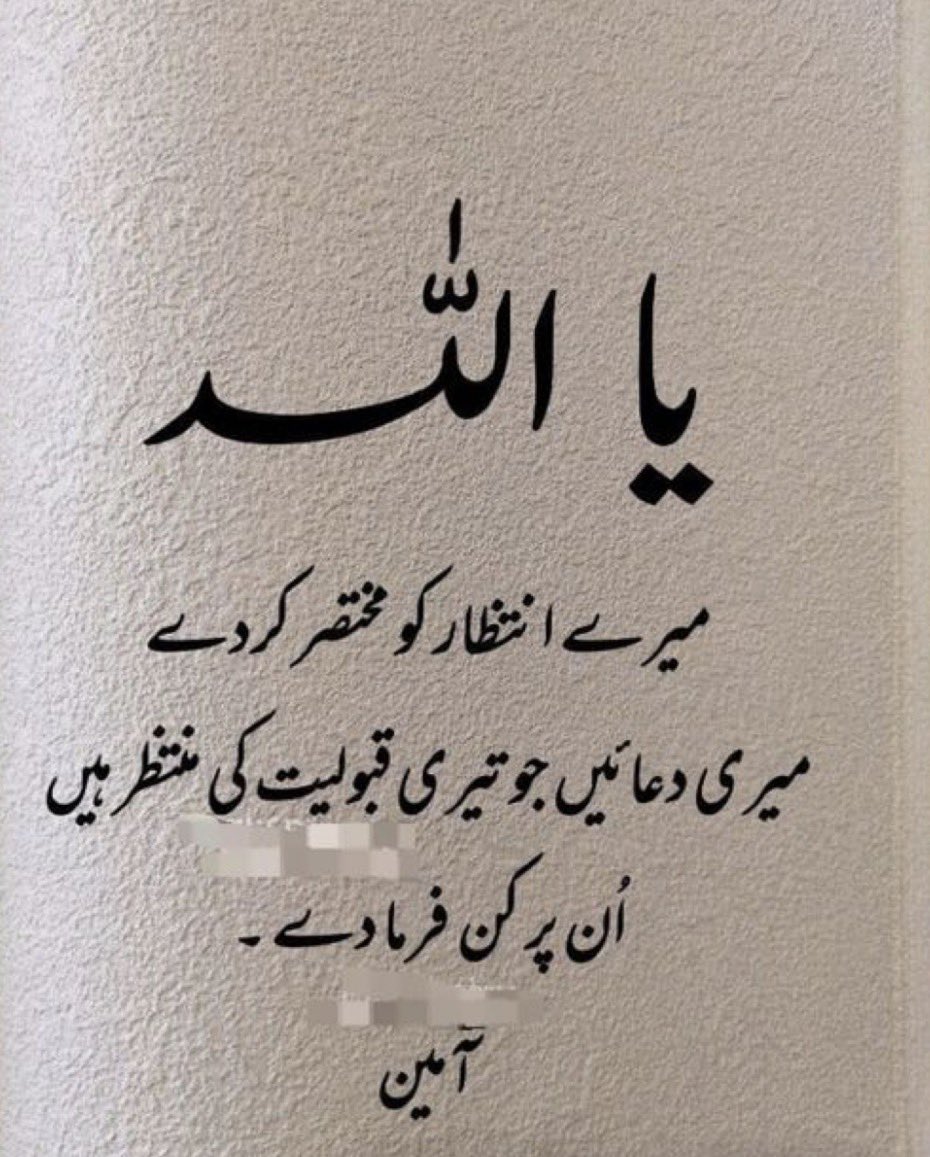 یا اللہ
میرے انتظار کو مختصر کر دے
میری دعائیں جو تیری قبولیت کی منتظر ہیں
اُن پر کن فرما دے ۔
آمین